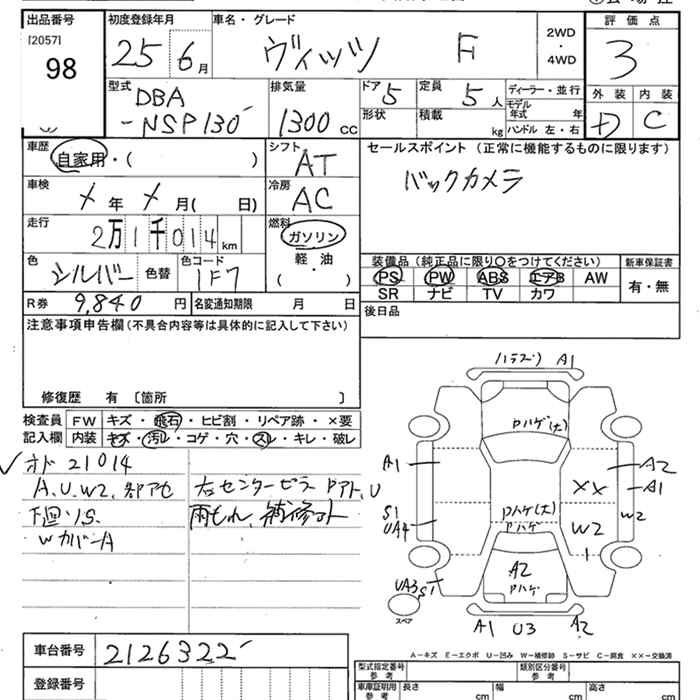 出品番号 初度登録年月 車名・グレード 評価点
[2057]
98
25 6月 ヴィッツ F
2WD
・
4WD
3
型式 排気量 ドア 定員 ディーラー・並行 外装 内装
DBA
-NSP130
1300 CC
5 5人
形状 積載 kg
モデル年式 年
ハンドル 左・右
D C
車歴 シフト セールスポイント (正常に機能するものに限ります)
自家用・( )
AT
バックカメラ
車検 冷房
メ年 メ月( 日)
AC
走行 燃料
2万1千014km
ガソリン
軽・油
( )
色 色替 色コード
シルバー 1F7
装備品 (純正品に限り○をつけてください) 新車保証書
PS PW ABS エアB AW 有・無
SR ナビ TV カワ
R券 9,840円 名変通知期限 月 日
後日品
注意事項申告欄 (不具合内容等は具体的に記入して下さい)
修復歴 有 〔箇所 〕
検査員 FW キズ・飛石・ヒビ割・リペア跡・×要
記入欄 内装 キズ・汚レ・コゲ・穴・スレ・キレ・破レ
オド 21014
A.U.W2.
右センターピラー PアトU
下回りS
雨もれ、補修アト
WカバーA
A1
Pハゲ(大)
A1 A2
A1
××
S1
UA4
Pハゲ(大)
Pハゲ
W2 W2
A2
Pハゲ
UA3 S1
スペア
A1 U3 A2
A-キズ E-エクボ U-凹み W-補修跡 S-サビ C-腐食 ××-交換済
車台番号 2126322
登録番号
型式指定番号 参考 類別区分番号 参考
車庫証明用 参考 長さ cm 幅 cm 高さ cm